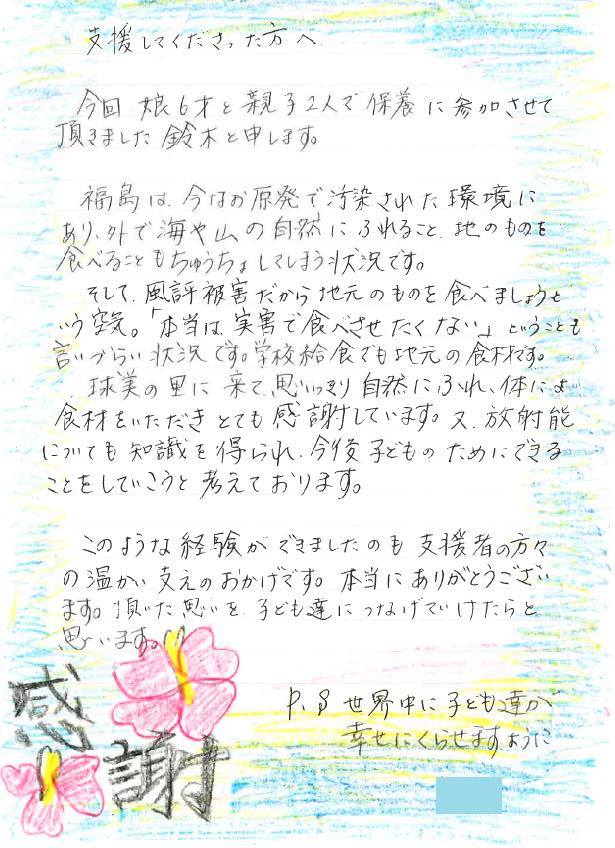 支援してくださった方へ
今回 娘6才と親子2人で保養に参加させて
頂きました 鈴木と申します。
福島は、今なお原発で汚染された環境に
あり、外で海や山の自然にふれること、地のものを
食べることもちゅうちょしてしまう状況です。
そして、風評被害だから地元のものを食べましょうと
いう空気。「本当は、実害で食べさせたくない」ということも
言いづらい状況です。学校給食でも地元の食材です。
球美の里に来て、思いっきり自然にふれ、体によい
食材をいただきとても感謝しています。又、放射能
についても知識を得られ、今後子どものためにできる
ことをしていこうと考えております。
このような経験ができましたのも支援者の方々
の温かい支えのおかげです。本当にありがとうござい
ます。頂いた思いを、子ども達につなげていけたらと
思います。
P.S 世界中に子ども達が
幸せにくらせますように
感謝